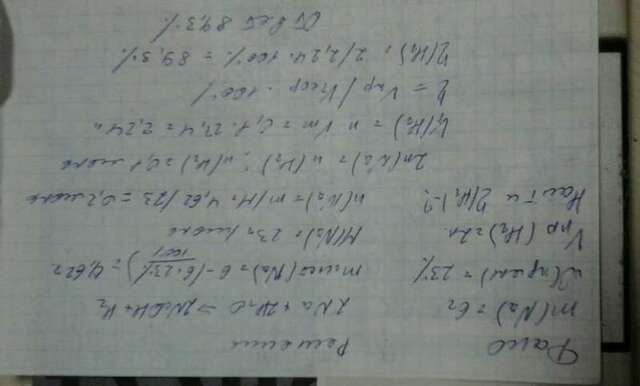 Дано
Решение
m(Na) = 6г
2Na + 2H₂O → 2NaOH + H₂
w(прим) = 23%
m чист(Na) = 6 - (6·23%/100%) = 4,62г
Vпр(H₂) = 2л
M(Na) = 23г/моль
Найти η(H₂) - ?
n(Na) = m/M = 4,62/23 = 0,2 моль
2n(Na) = n(H₂); n(H₂) = 0,1 моль
V(H₂) = n Vm = 0,1·22,4 = 2,24л
η = Vпр/Vтеор · 100%
η(H₂) = 2/2,24·100% = 89,3%
Ответ 89,3%